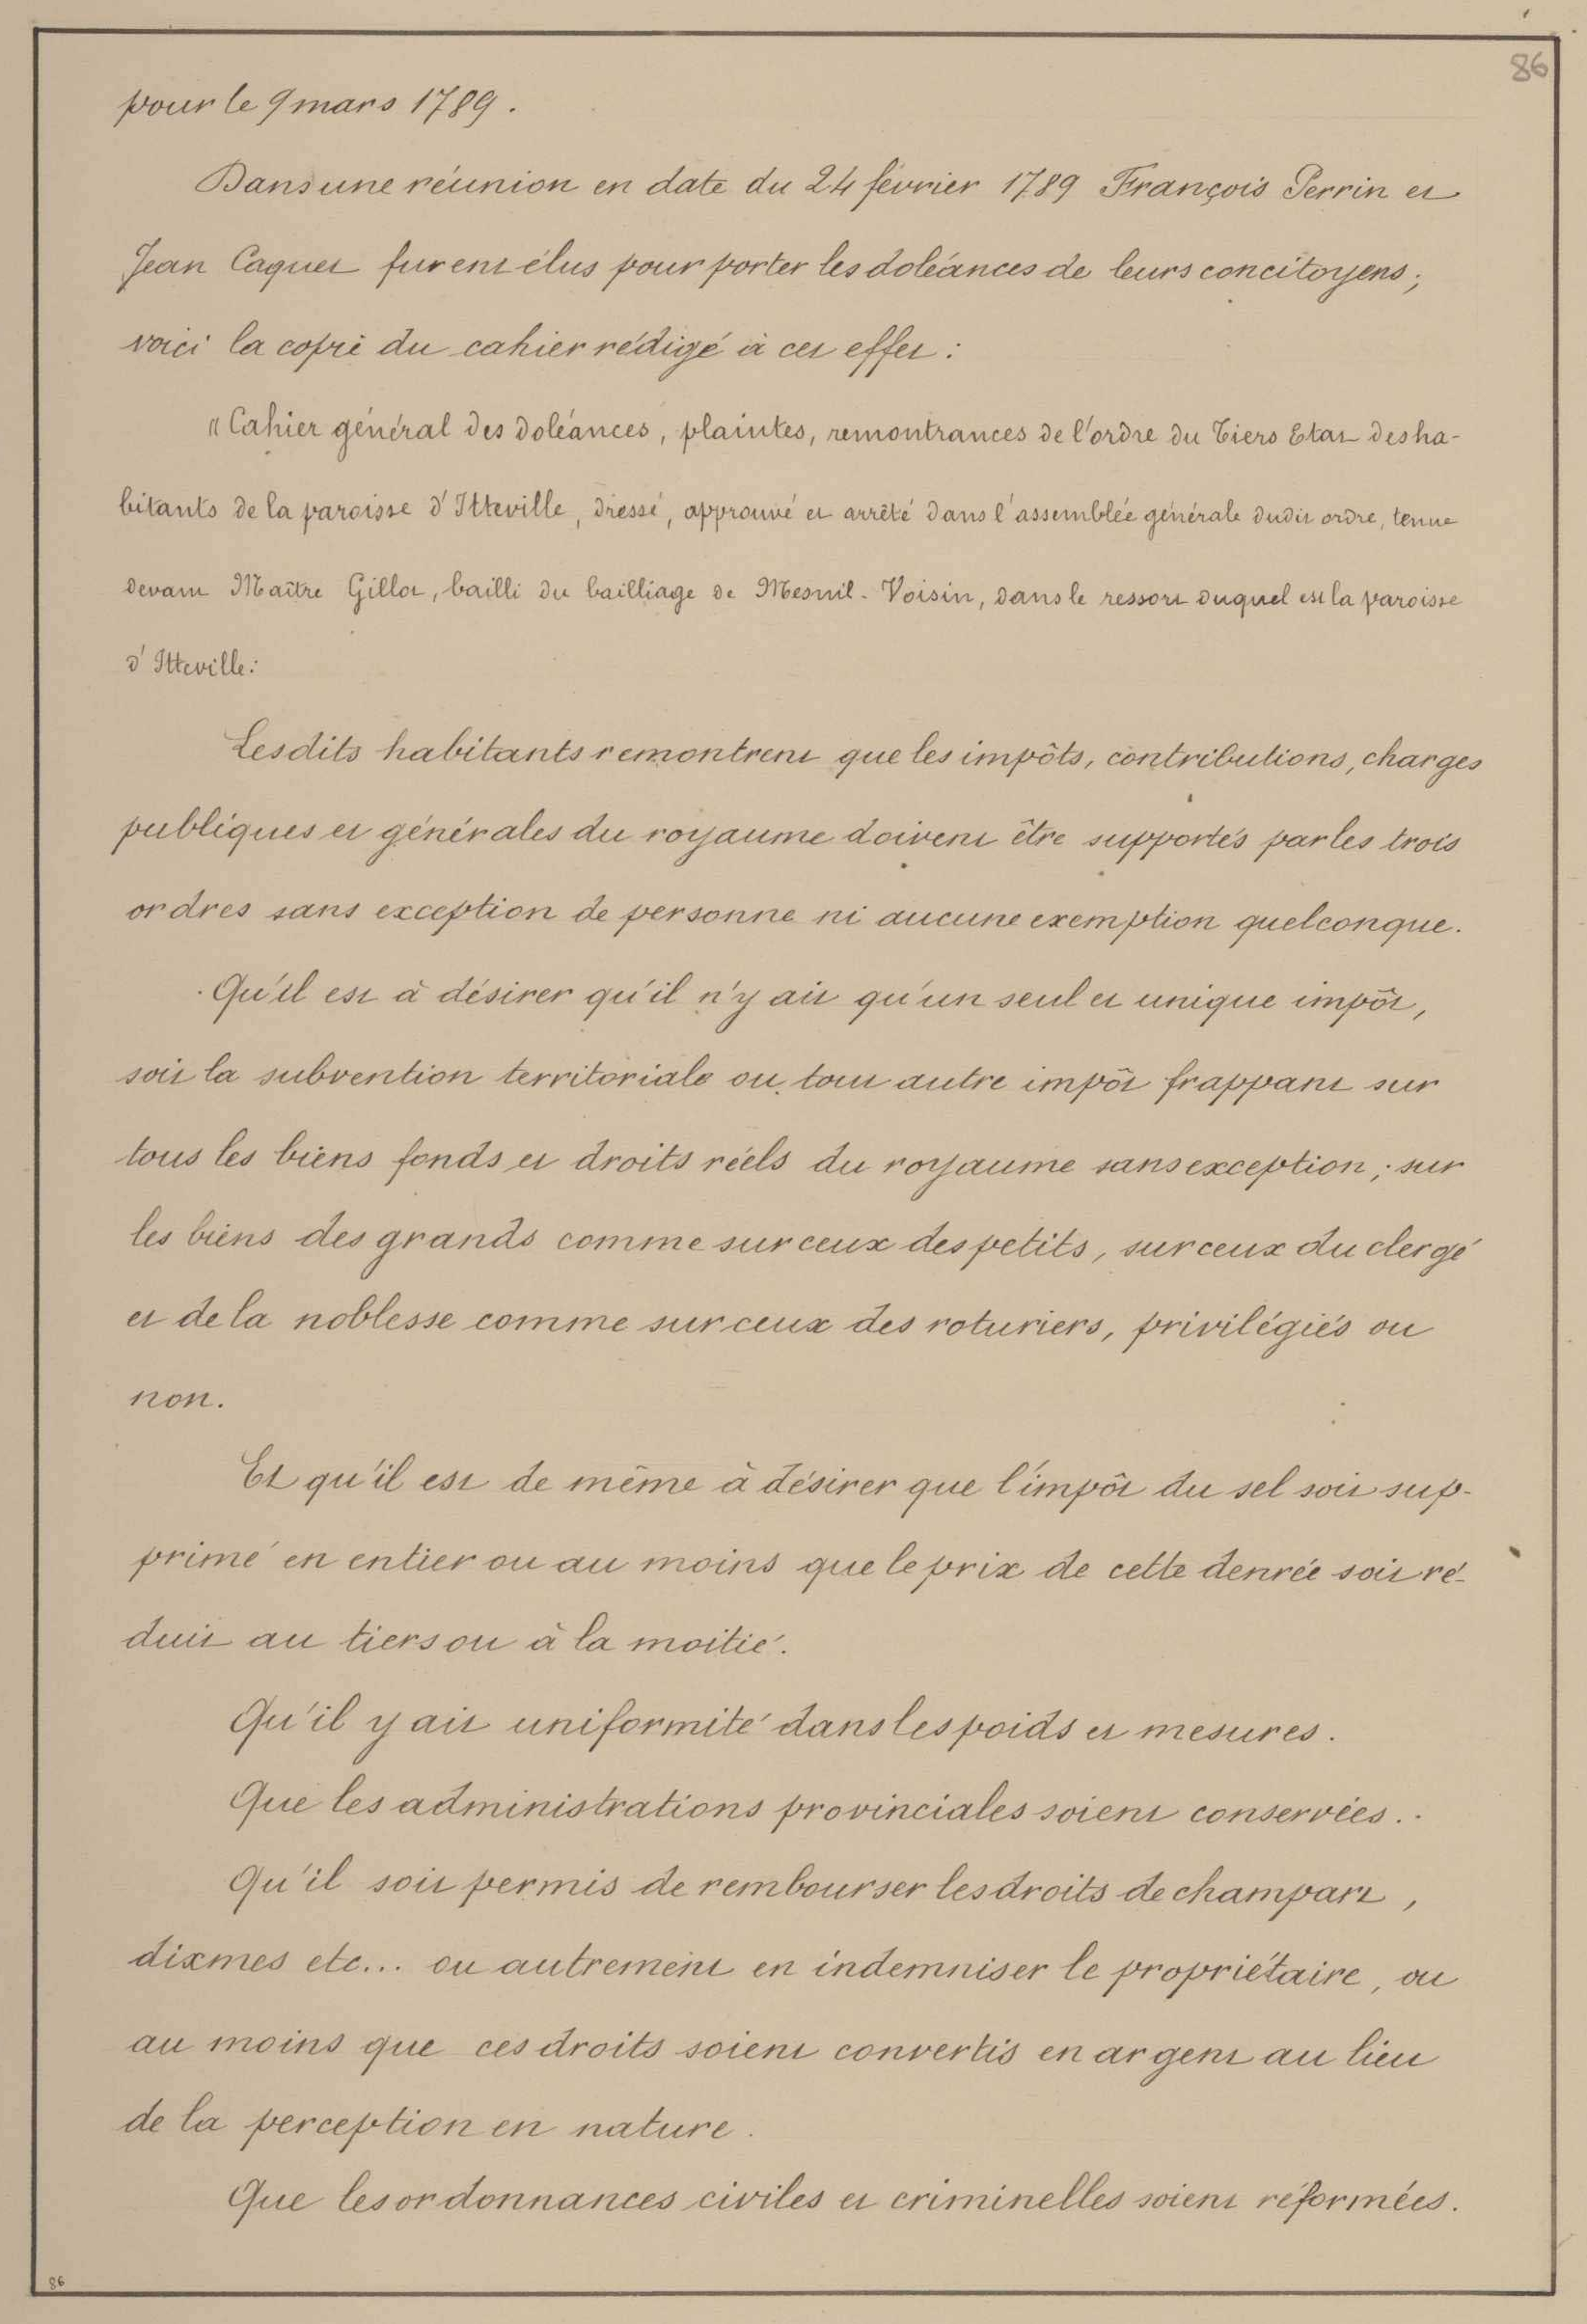 86
pour le 9 mars 1789.
Dans une réunion en date du 24 février 1789 François Perrin et
Jean Caquet furent élus pour porter les doléances de leurs concitoyens;
voici la copie du cahier rédigé à cet effet :
"Cahier général des doléances, plaintes, remontrances de l'ordre du Tiers Etat des ha-
bitants de la paroisse d'Itteville, dressé, approuvé et arrêté dans l'assemblée générale dudit ordre, tenue
devant Maître Gillot, bailli du bailliage de Mesnil-Voisin, dans le ressort duquel est la paroisse
d'Itteville:
Lesdits habitants remontrent que les impôts, contributions, charges
publiques et générales du royaume doivent être supportés par les trois
ordres sans exception de personne ni aucune exemption quelconque.
Qu'il est à désirer qu'il n'y ait qu'un seul et unique impôt,
soit la subvention territoriale ou tout autre impôt frappant sur
tous les biens fonds et droits réels du royaume sans exception; sur
les biens des grands comme sur ceux des petits, sur ceux du clergé
et de la noblesse comme sur ceux des roturiers, privilégiés ou
non.
Et qu'il est de même à désirer que l'impôt du sel soit sup-
primé en entier ou au moins que le prix de cette denrée soit ré-
duit au tiers ou à la moitié.
Qu'il y ait uniformité dans les poids et mesures.
Que les administrations provinciales soient conservées.
Qu'il soit permis de rembourser les droits de champart,
dixmes etc... ou autrement en indemniser le propriétaire, ou
au moins que ces droits soient convertis en argent au lieu
de la perception en nature.
Que les ordonnances civiles et criminelles soient réformées.
86